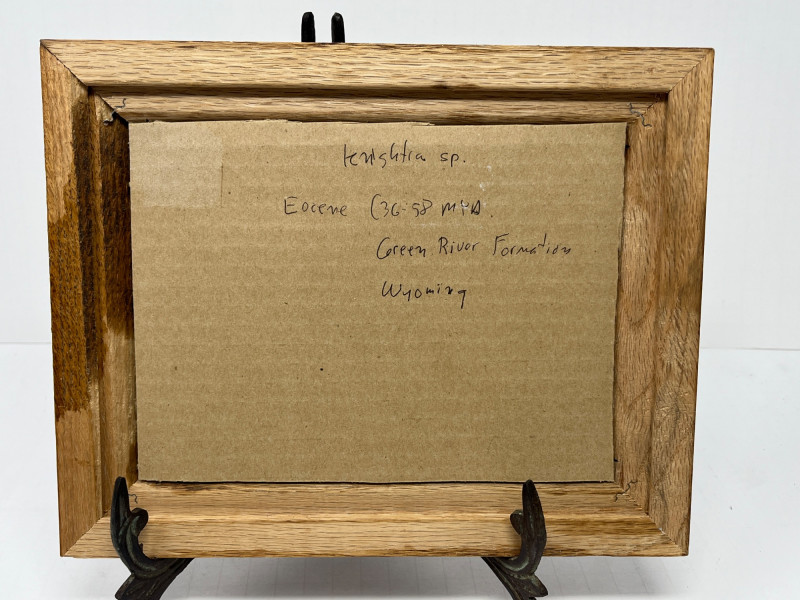 Knightia sp.
Eocene (36-58 MYA.
Green River Formation
Wyoming